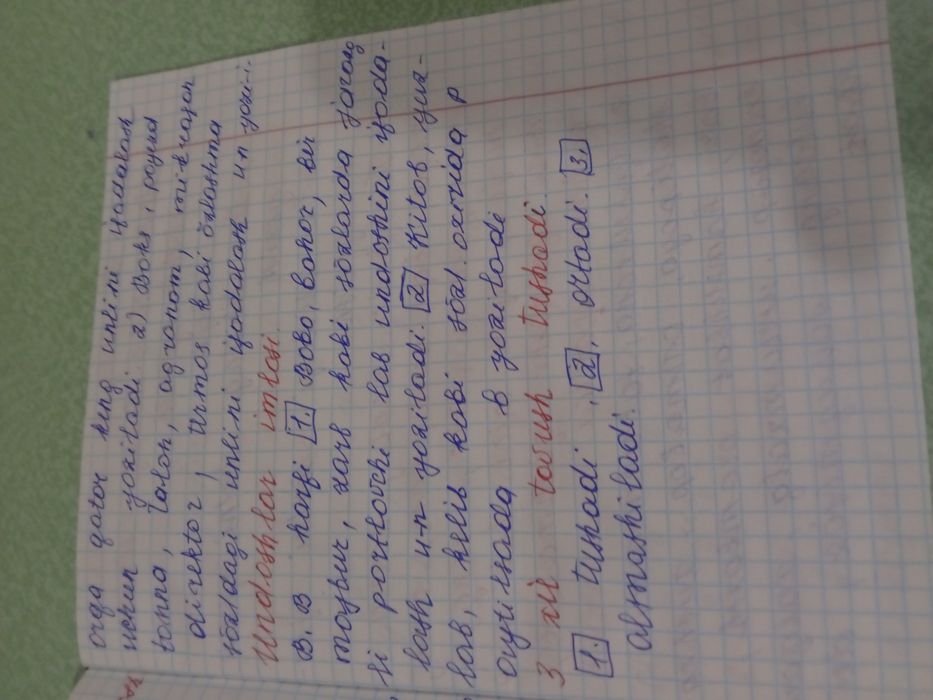 orqa qator keng unlini ifodalash
uchun yoziladi a) Boks, poyezd
tonna, talon, agronom, mikrafon
direktor, termos kabi o'zlashma
so'zlardagi unlini ifodalash u-n yozi-i.
Undoshlar imlosi
B. B harfi 1. Bobo, bahor, bir
majbur, zarb kabi so'zlarda jarang
li portlovchi lab undoshini ifoda-
lash u-n yoziladi. 2 Kitob, yuz-
lab, kelib kabi so'zl. oxirida p
aytilsada b yoziladi
3 xil tovush tushadi
1. tushadi. 2. ortadi. 3.
almashiladi.